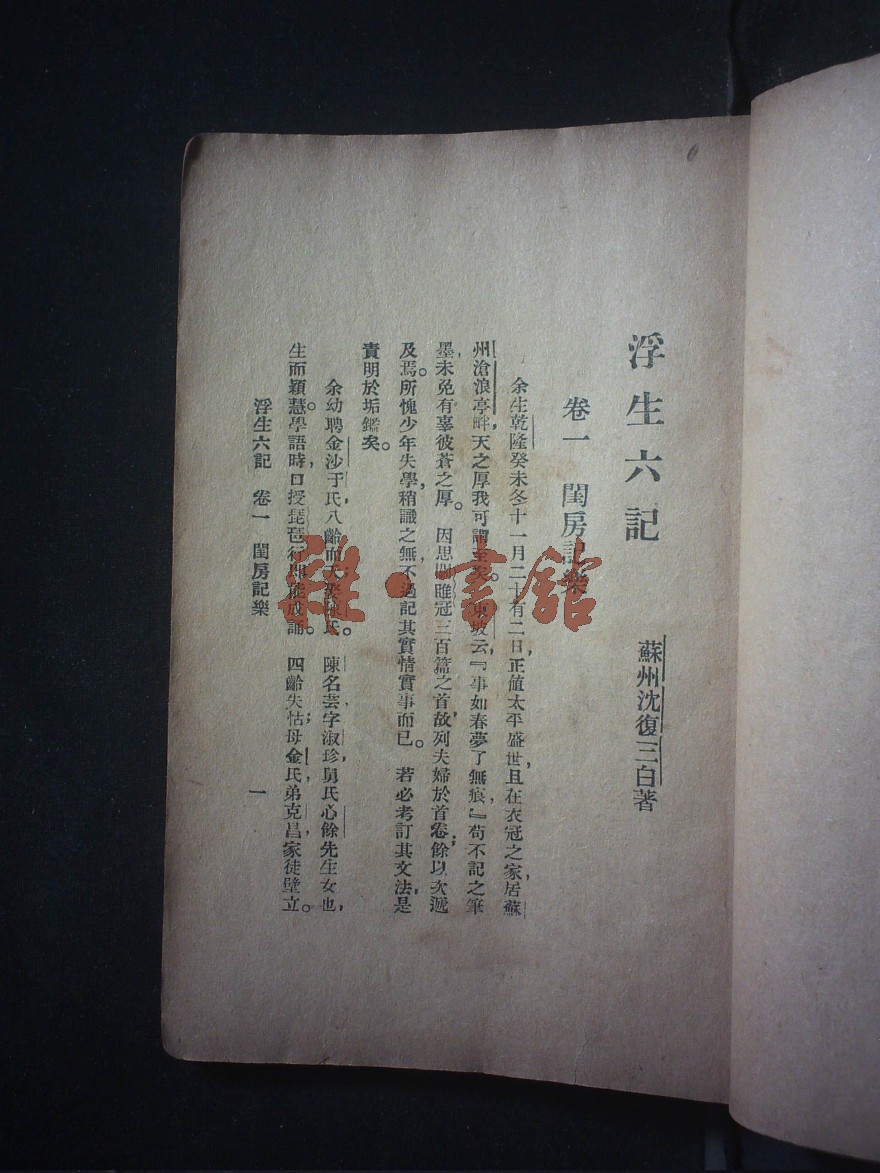 浮生六記
蘇州沈復三白著
卷一 閨房記樂
余生乾隆癸未冬十一月二十有二日,正值太平盛世,且在衣冠之家,居蘇
州滄浪亭畔,天之厚我可謂至矣。東坡云『事如春夢了無痕,』苟不記之筆
墨,未免有辜彼蒼之厚。因思關雎冠三百篇之首,故列夫婦於首卷;餘以次遞
及焉。所愧少年失學,稍識之無,不過記其實情實事而已。若必考訂其文法,是
責明於垢鑑矣。
余幼聘金沙于氏,八齡而夭;娶陳氏。陳名芸,字淑珍,舅氏心餘先生女也,
生而穎慧。學語時,口授琵琶行,即能成誦。四齡失怙;母金氏,弟克昌,家徒壁立。
浮生六記 卷一 閨房記樂
一
雜·書館